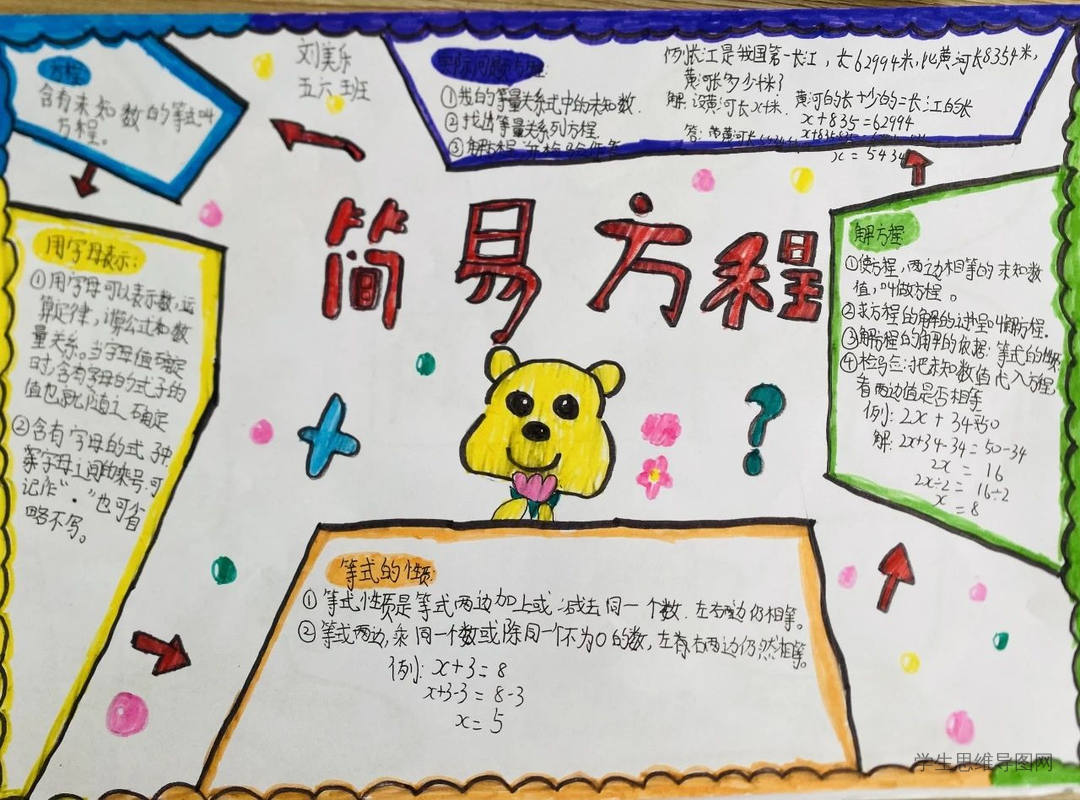 方程
含有未知数的等式叫
方程。
刘美乐
五六班
实际问题方程:
①找的等量关系式中的未知数.
②找出等量关系列方程
③解方程
例:长江是我国第一长江,长62994米,比黄河长8354米,
黄河长多少米?
解:设黄河长x米. 黄河的长+少的=长江的长
x+835=62994
答:
x=5434
简易方程
用字母表示:
①用字母可以表示数,运
算定律,计算公式和数
量关系。当字母值确定
时,含有字母的式子的
值也就随之确定
②含有字母的式子中,
字母之间的乘号,可
记作“·”也可省
略不写。
解方程
①使方程,两边相等的未知数
值,叫做方程。
②求方程的解的过程叫解方程.
③解方程的解的依据:等式的性质
④检验:把未知数值代入方程
看两边值是否相等
例:2x+34=50
解:2x+34-34=50-34
2x=16
2x÷2=16÷2
x=8
等式的性质
①等式性质是等式两边加上或减去同一个数.左右两边仍相等。
②等式两边,乘同一个数或除同一个不为0的数,左右两边仍然相等。
例:x+3=8
x+3-3=8-3
x=5
学生思维导图网